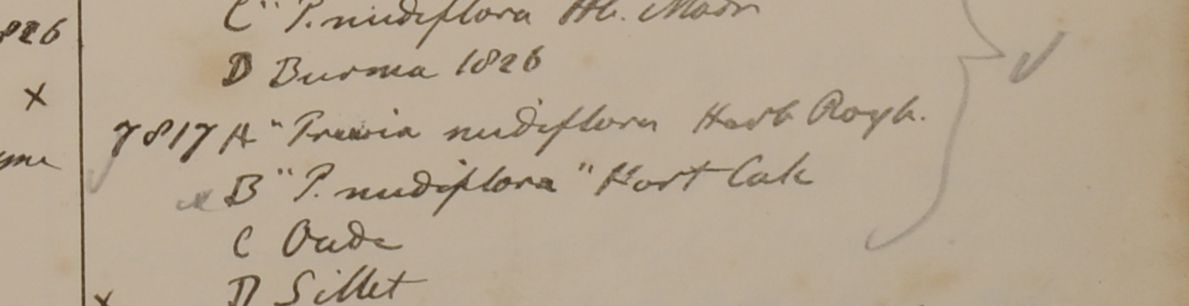 826
C "P. nudiflora Hb. Madr
D Burma 1826
x
7817 A "Trewia nudiflora Herb Roxb.
B "P. nudiflora" Hort Calc
C Oude
D Sillet
x